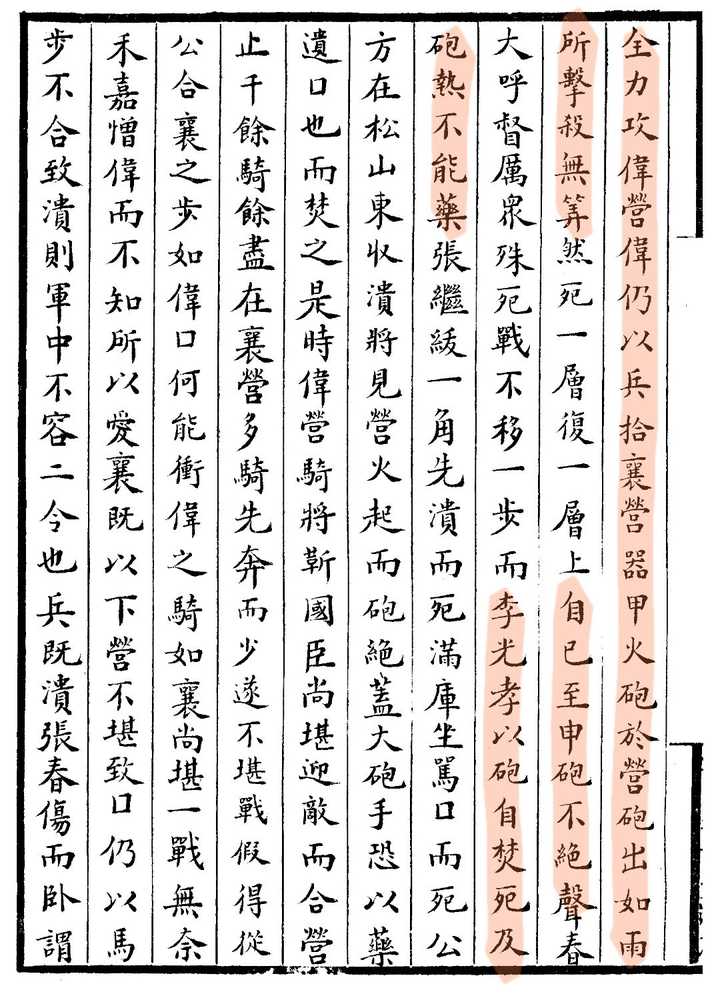 全力攻偉營偉仍以兵拾襄營器甲火砲於營砲出如雨
所擊殺無筭然死一層復一層上自巳至申砲不絕聲春
大呼督厲衆殊死戰不移一步而李光孝以砲自焚死及
砲熱不能藥張繼紱一角先潰而死滿庫坐罵口而死公
方在松山東收潰將見營火起而砲絕蓋大砲手恐以藥
遺口也而焚之是時偉營騎將靳國臣尚堪迎敵而合營
止千餘騎餘盡在襄營多騎先奔而少遂不堪戰假得從
公合襄之步如偉口何能衝偉之騎如襄尚堪一戰無奈
禾嘉憎偉而不知所以愛襄既以下營不堪致口仍以馬
步不合致潰則軍中不容二令也兵既潰張春傷而臥謂